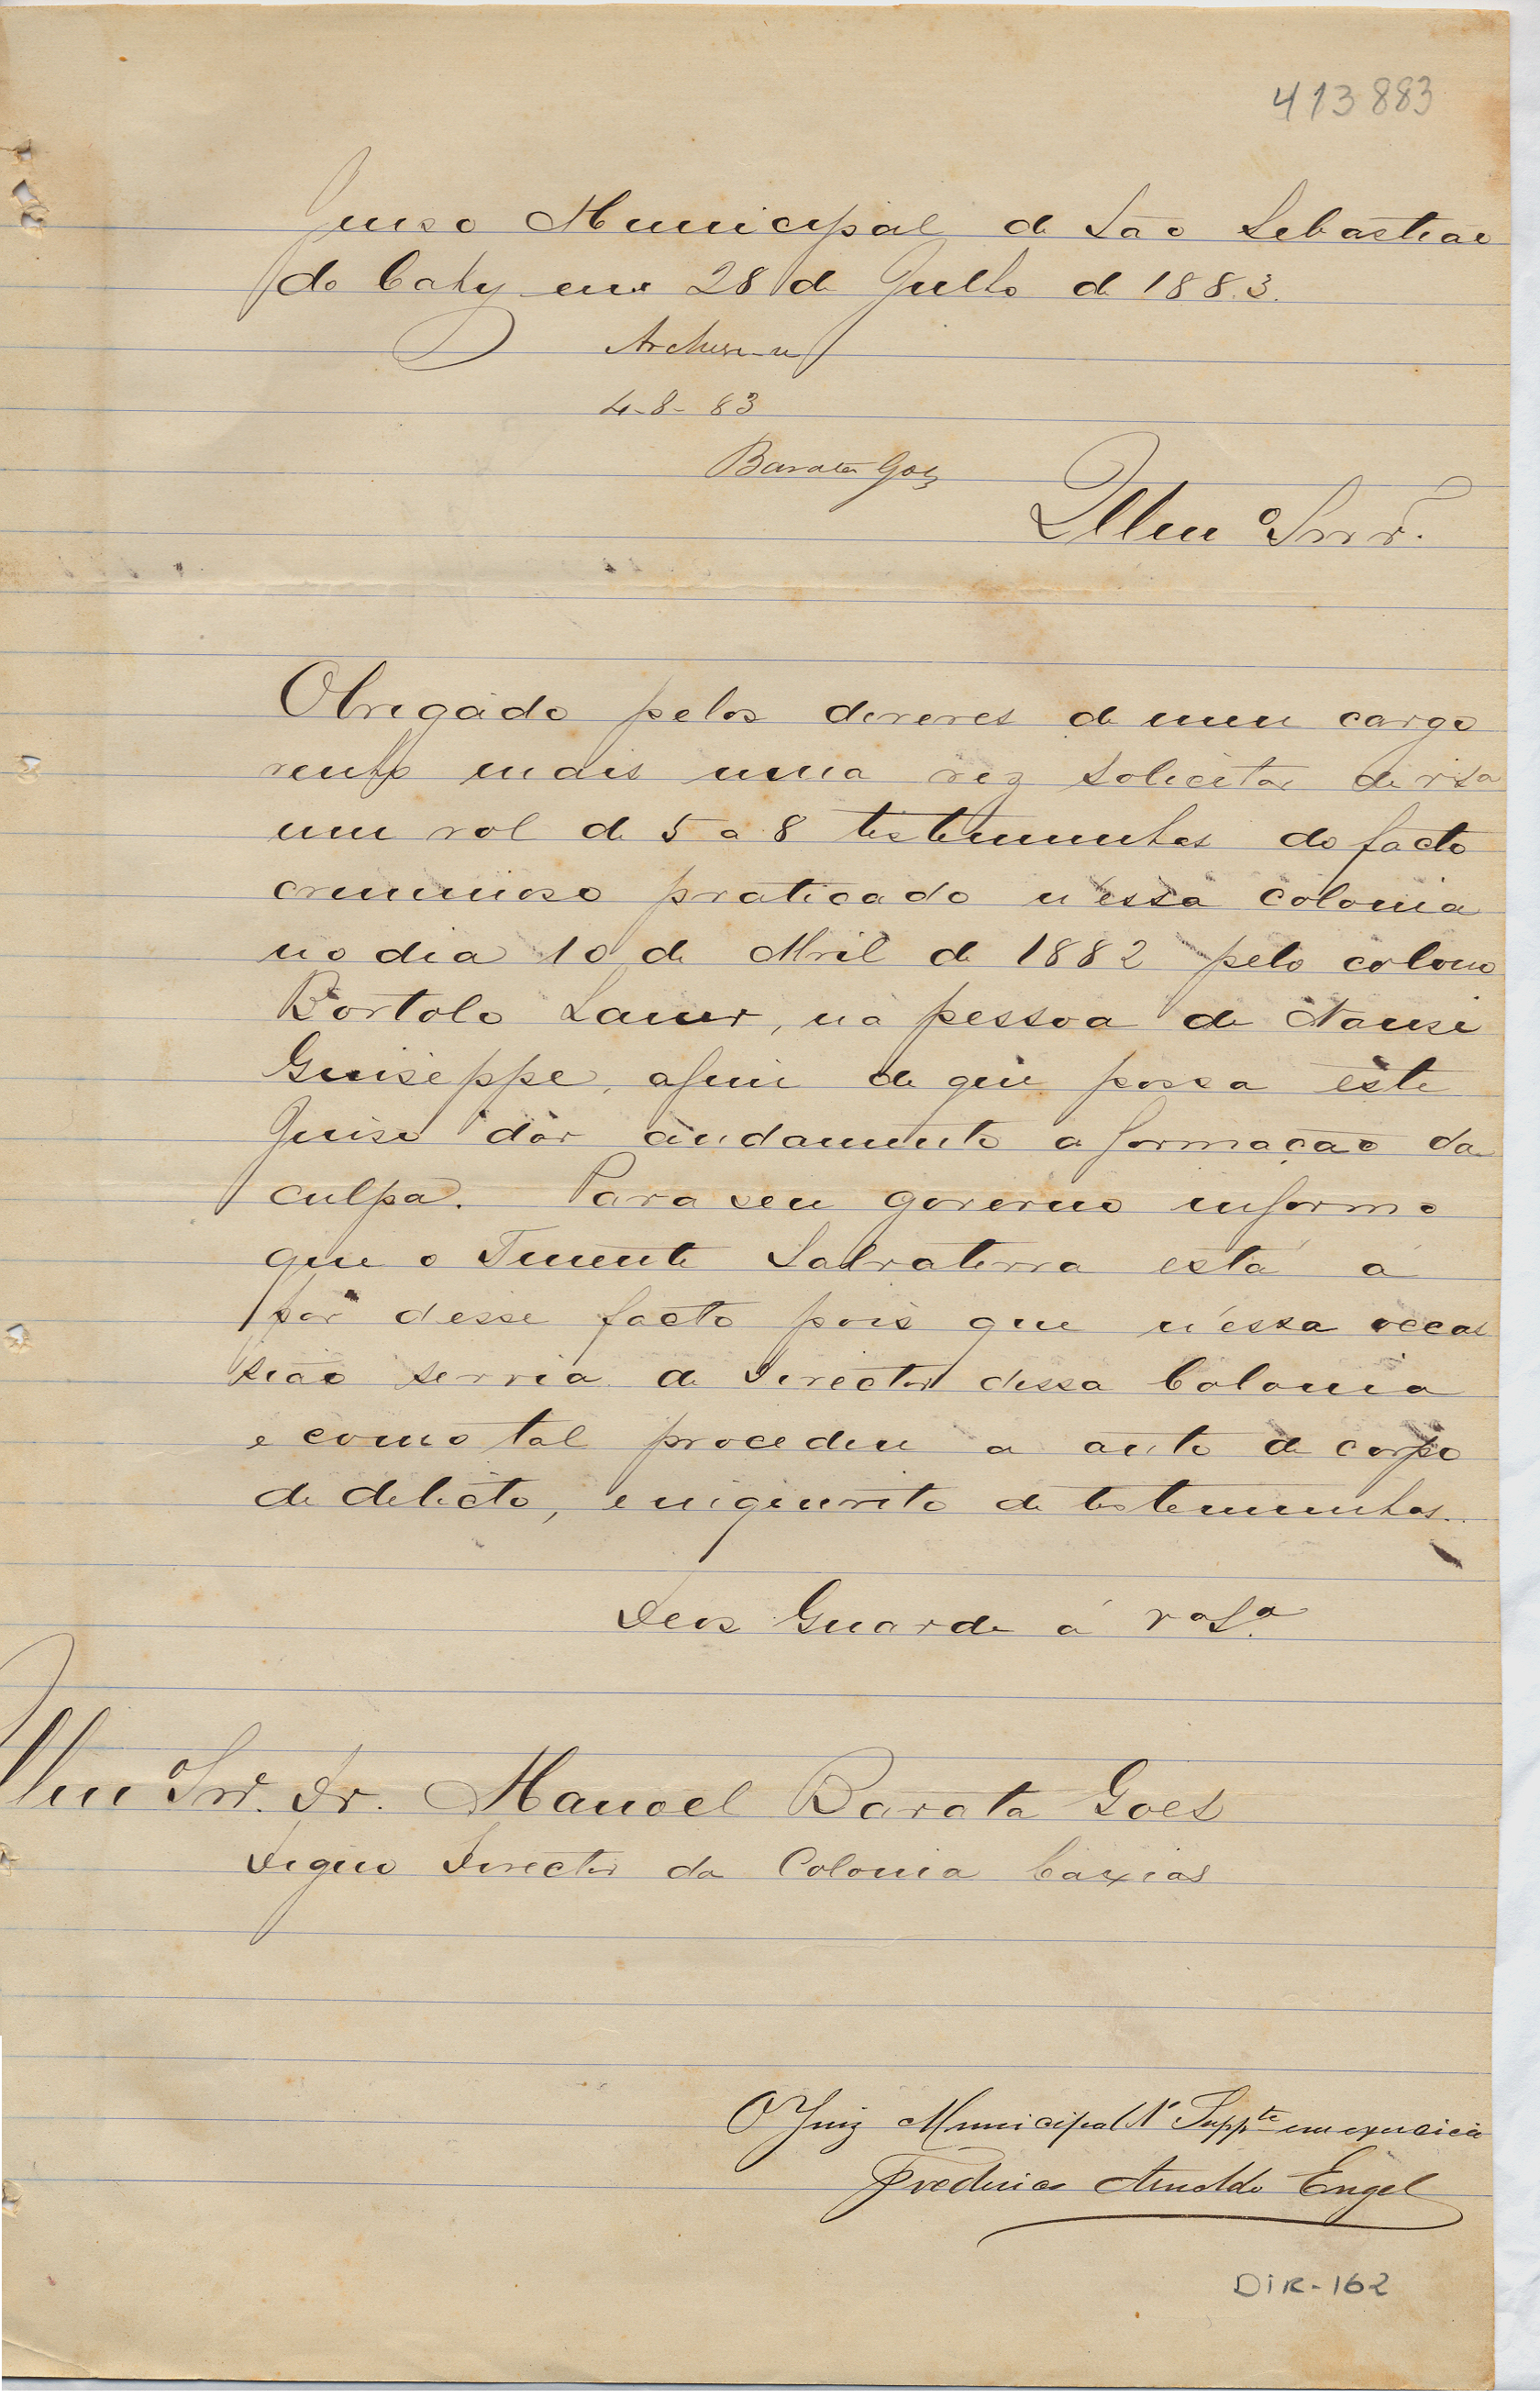 413883
Juiso Municipal de São Sebastião
do Cahy em 28 de Julho de 1883.
Archive-se
4-8-83
Barata Goes
Illmo Snr.
Obrigado pelos deveres de meu cargo
venho mais uma vez solicitar de vsa
um rol de 5 a 8 testemunhas do facto
criminoso praticado n'essa colonia
no dia 10 de Abril de 1882 pelo colono
Bortolo Lauer, na pessoa de Nansi
Guiseppe, afim de que possa este
Juiso dar andamento a formação da
culpa. Para seu governo informo
que o Tenente Salvaterra está a
par desse facto pois que n'essa occas
sião servia de Director dessa Colonia
e como tal procedeu a auto de corpo
de delicto, e inquerito de testemunhas.
Deos Guarde á VaSa.
Illmo Snr. Dr. Manoel Barata Goes
Digno Director da Colonia Caxias
O Juiz Municipal 1º Suppte em exercicio
Frederico Arnoldo Engel
DIR-162